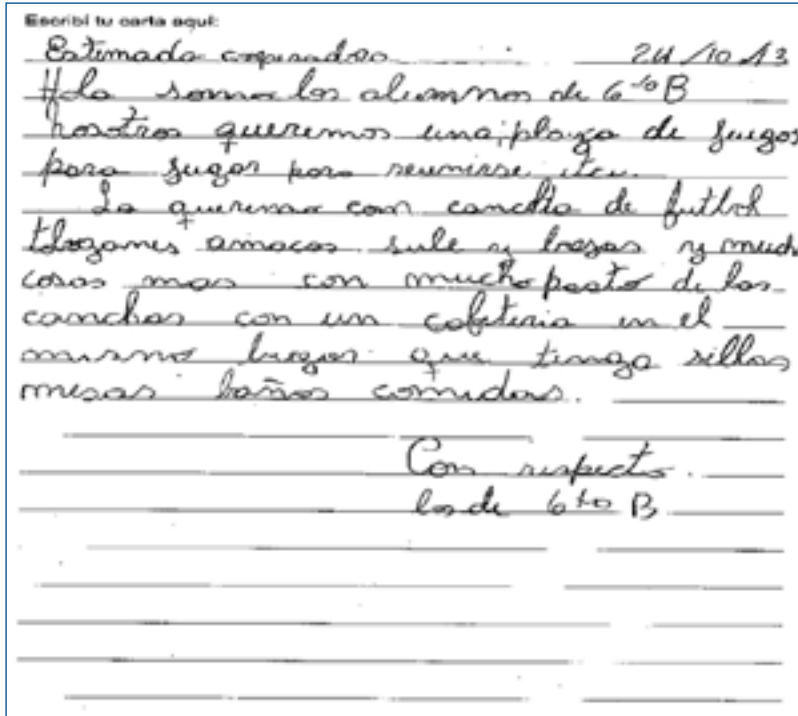 Escribí tu carta aquí:
Estimada 24/10/13
Hola somos los alumnos de 6to B
nosotros queremos una plaza de juegos
para jugar para reunirse etc.
La queremos con cancha de futbol
amacas sube y bajas y much
cosas mas con mucho pasto de las
canchas con un cafeteria en el
mismo lugar que tenga sillas
mesas baños comidas.
Con respecto
los de 6to B